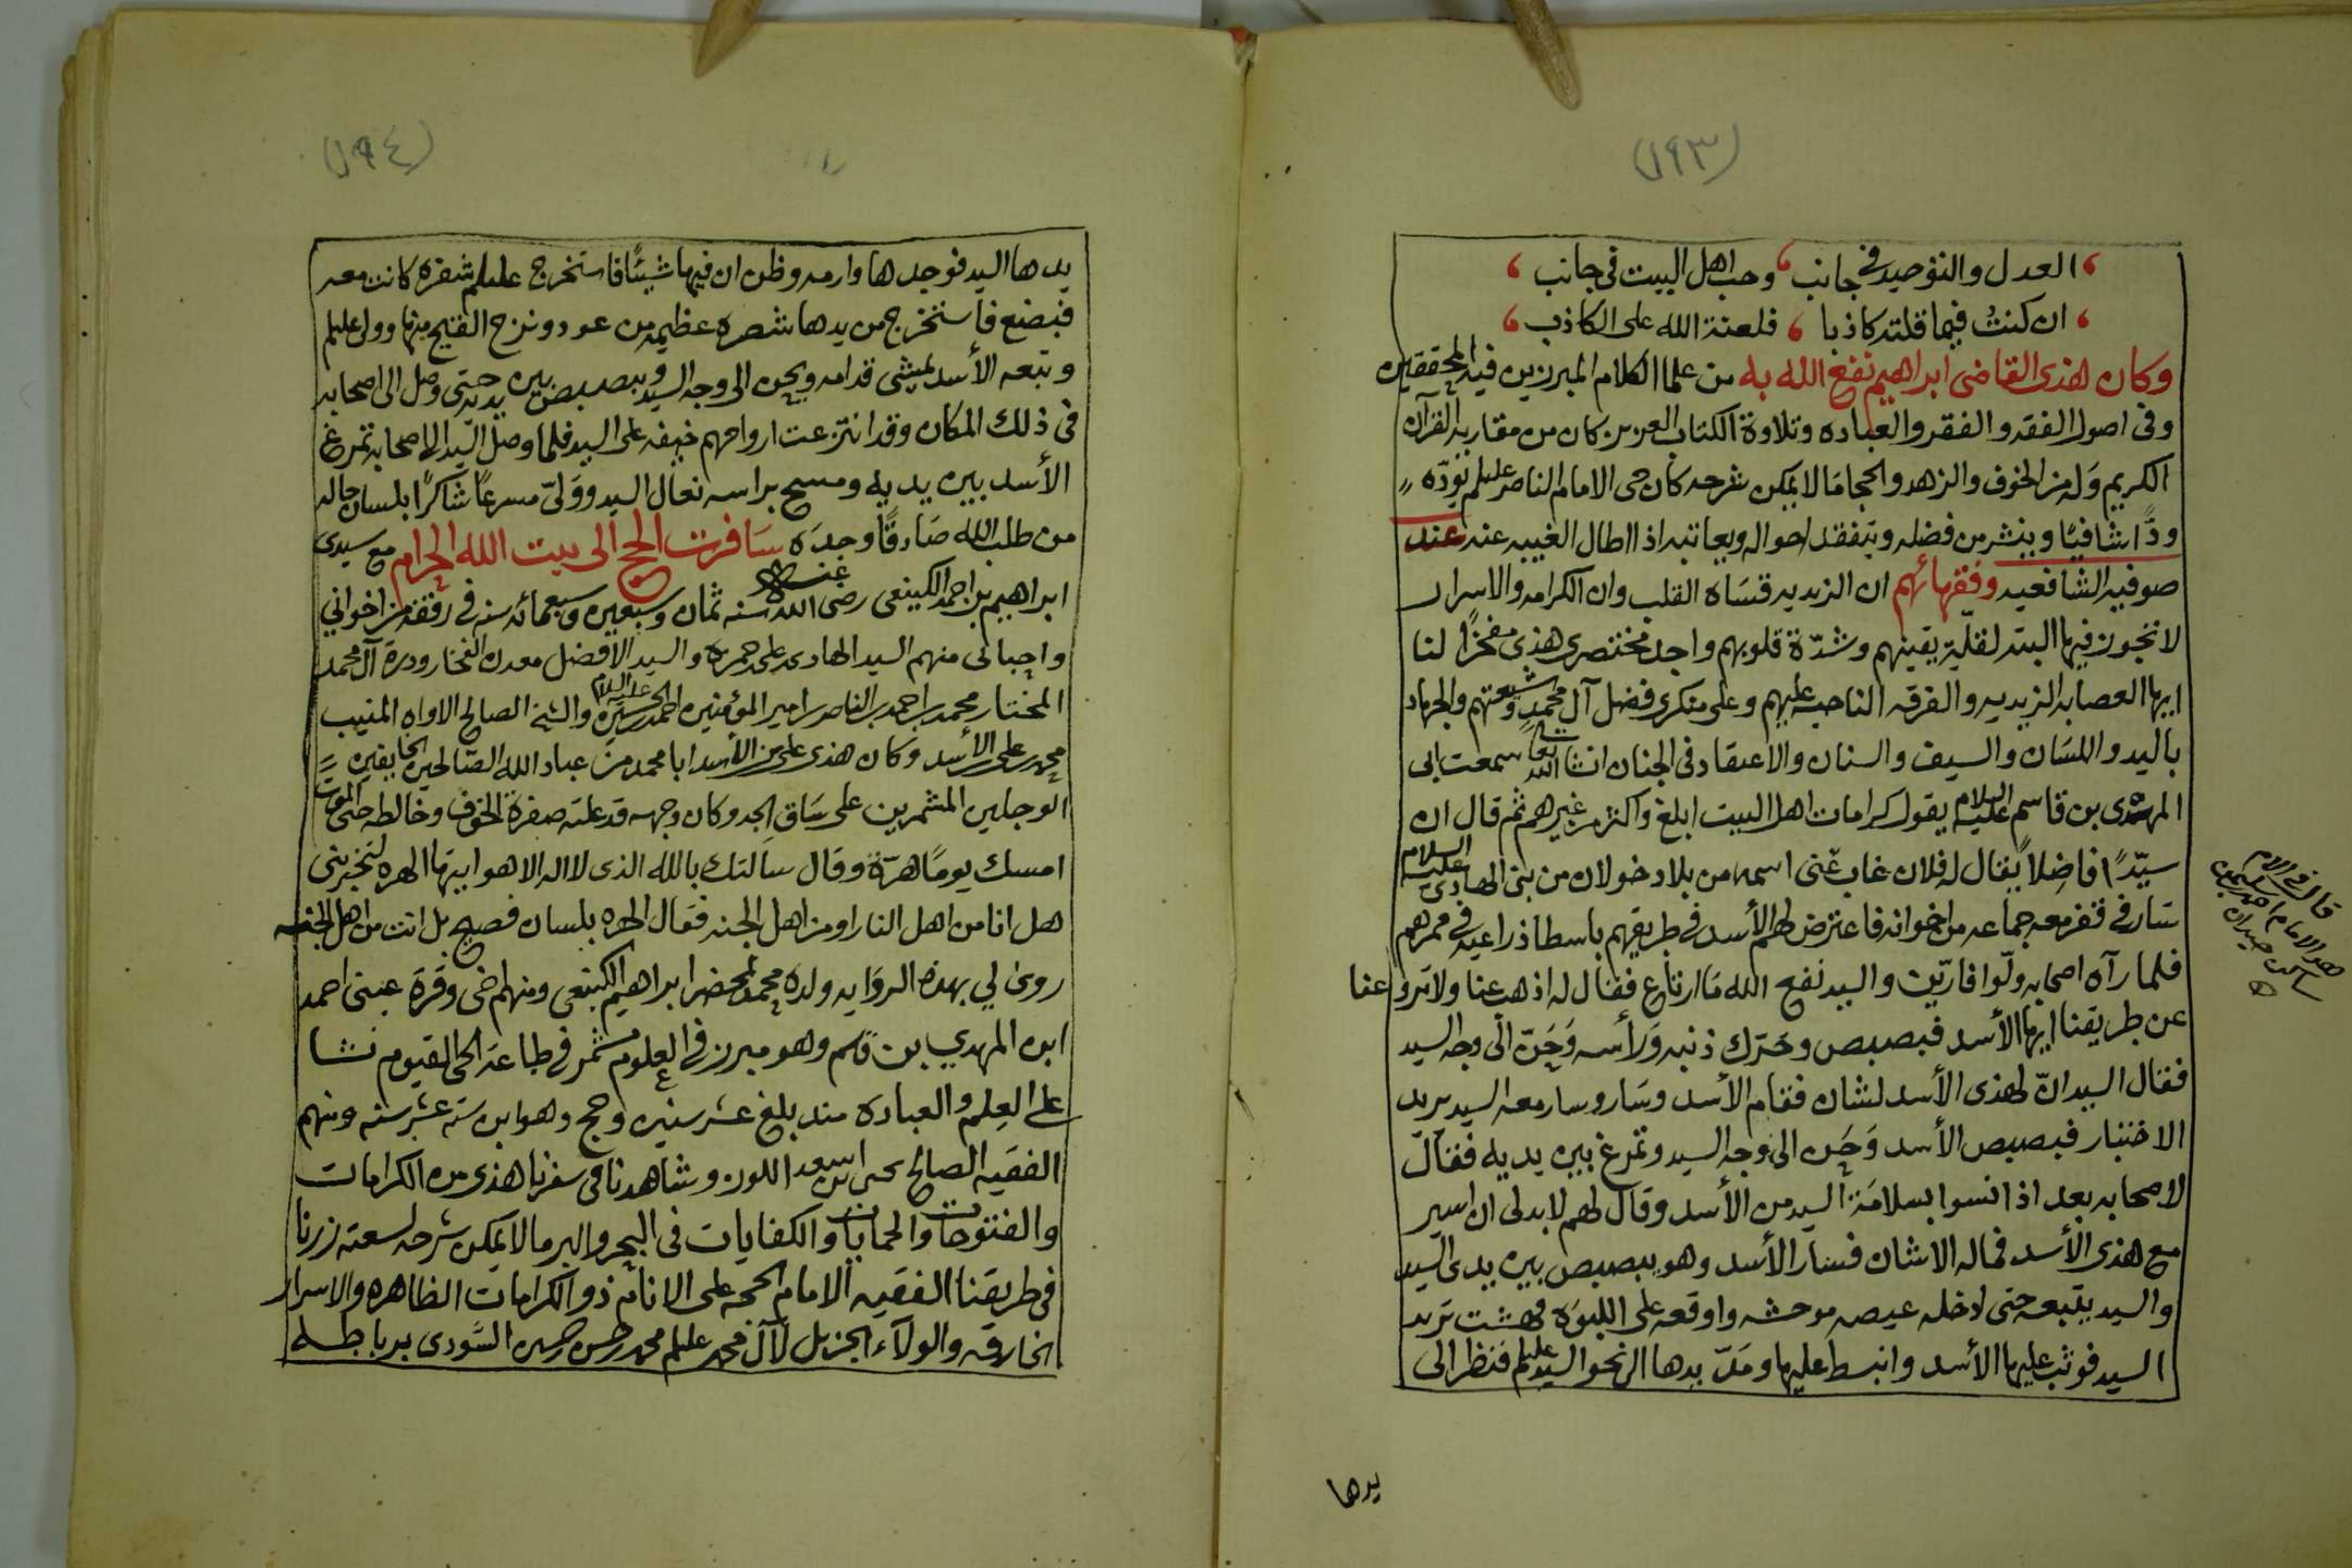 (١٩٣)
العدل والتوحيد في جانب وحب اهل البيت في جانب
ان كنتُ فيما قلته كاذبا فلعنة الله على الكاذب
وكان هذى القاضى ابراهيم نفع الله به من علما الكلام المبرزين فيه المحققين
وفى اصول الفقه والفقه والعباده وتلاوة الكتاب العزيز كان من مقاربه القرآن
الكريم وَله من الخوف والزهد والحجا مَا لا يمكن شرحه كان حى الامام الناصر عليلم يودّه
ودًّا شافيًا وينشر من فضله ويتفقد احواله ويعاتبه اذا اطال الغيبه عنه عند
صوفيه الشافعيه وفقهائهم ان الزيديه قسَاة القلب وان الكرامه والاسرار
لا تجوز فيها البته لقلّة يقينهم وشدّة قلوبهم واجد مختصرى هذى مفخرًا لنا
ايها العصابه الزيديه والفرقه الناجيه عليهم وعلى منكرى فضل آل محمد وشيعتهم والجهاد
باليد واللسَان والسيف والسنان والاعتقاد فى الجنان انشا الله تعا سمعت ابى
المهدى بن قاسم عليه السلام يقول كرامات اهل البيت ابلغ واكثر من غيرهم ثم قال ان
سيّدًا فاضِلاً يقال له فلان غاب عَنى اسمه من بلاد خولان من بنى الهادى عليه السلام
سَار فى قفر معه جماعه من اخوانه فاعترض لهم الأسد فى طريقهم باسطا ذراعيه فى ممرهم
فلما رآه اصحابه ولّوا فارّين والسيد نفع الله مَا ارتاع فقال له اذهب عنا ولا تروعنا
عن طريقنا ايها الأسد فبصبص وحَرّك ذنبه وَرأسه وَحَنّ الى وجه السيد
فقال السيد انّ لهذى الأسد لشان فقام الأسد وسَار وسار معه السيد يريد
الاختبار فبصبص الأسد وَحَن الى وجه السيد وتمرغ بين يديه فقال
لاصحابه بعد اذ انسوا بسلامَة السيد من الأسد وقال لهم لا بد لى ان اسير
مع هذى الأسد فماله الا شان فسار الأسد وهو يبصبص بين يدى السيد
والسيد يتبعه حتى ادخله عيصه موحشه واوقعه على اللبوَه فهشت تريد
السيد فوثب عليها الأسد وانبسط عليها ومَدّ يدها الى نحو السيد عليلم فنظر الى
يدها
(١٩٤)
يدها السيد فوجدها وارمه وظن ان فيها شيئًا فاستخرج عليلم شفره كانت معه
فبضع فاستخرج من يدها شصره عظيمه من عود ونزح القيح منها وولى عليلم
وتبعه الأسد يمشى قدامه ويحن الى وجه السيد ويبصبص بين يديه حتى وصل الى اصحابه
فى ذلك المكان وقد انتزعت ارواحهم خيفه على السيد فلما وصل السّيد الى اصحابه تمرغ
الأسد بين يديه ومسح براسه نعال السيد ووَلىّ مسرعًا شاكرًا بلسان حاله
من طلب الله صَادقًا وجدَه سَافرت الحج الى بيت الله الحرام مع سيدى
ابراهيم بن احمد الكينعى رضى الله عنه سنه ثمان وسبعين وسبعمائه سنه فى رفقة من اخواني
واحبائى منهم السيد الهادى بن على حمزه والسيد الافضل معدن الفخار ودرة آل محمد
المختار محمد بن احمد بن الناصر امير المؤمنين احمد بن الحسين عليه السلام والشيخ الصالح الاواه المنيب
محمد بن على الأسد وكان هذى على بن الأسد ابا محمد منَ عباد الله الصّالحين الخايفين
الوجلين المشمرين على سَاق الجد وكان وجهه قد علته صفرة الخوف وخالطه حتى الموت
امسك يومًا هرّة وقال سالتك بالله الذى لا اله الا هو ايتها الهره لتخبرينى
هل انا من اهل النار او من اهل الجنه فقال الهره بلسان فصيح بل انت من اهل الجنه
روى لي بهذه الروَايه ولده محمد بمحضر ابراهيم الكينعى ومنهم اخى وقرة عينى احمد
ابن المهدي بن قسم وهو مبرز فى العلوم مشمر فى طاعة الحى القيوم نشا
على العِلم والعبادة منذ بلغ عشر سنين وحج وهو ابن سته عشر سنه ومنهم
الفقيه الصالح يحيى بن اسعد اللوز وشاهدنا فى سفرنا هذى من الكرامات
والفتوحات والحمايات والكفايات فى البحر والبر ما لا يمكن شرحه لسعته زرنا
فى طريقنا الفقيه الامام الحجه على الانام ذو الكرامات الظاهره والاسرار
الخارقه والولآء الجزيل لآل محمد عليلم محمد بن حسن السَّودى برباطه